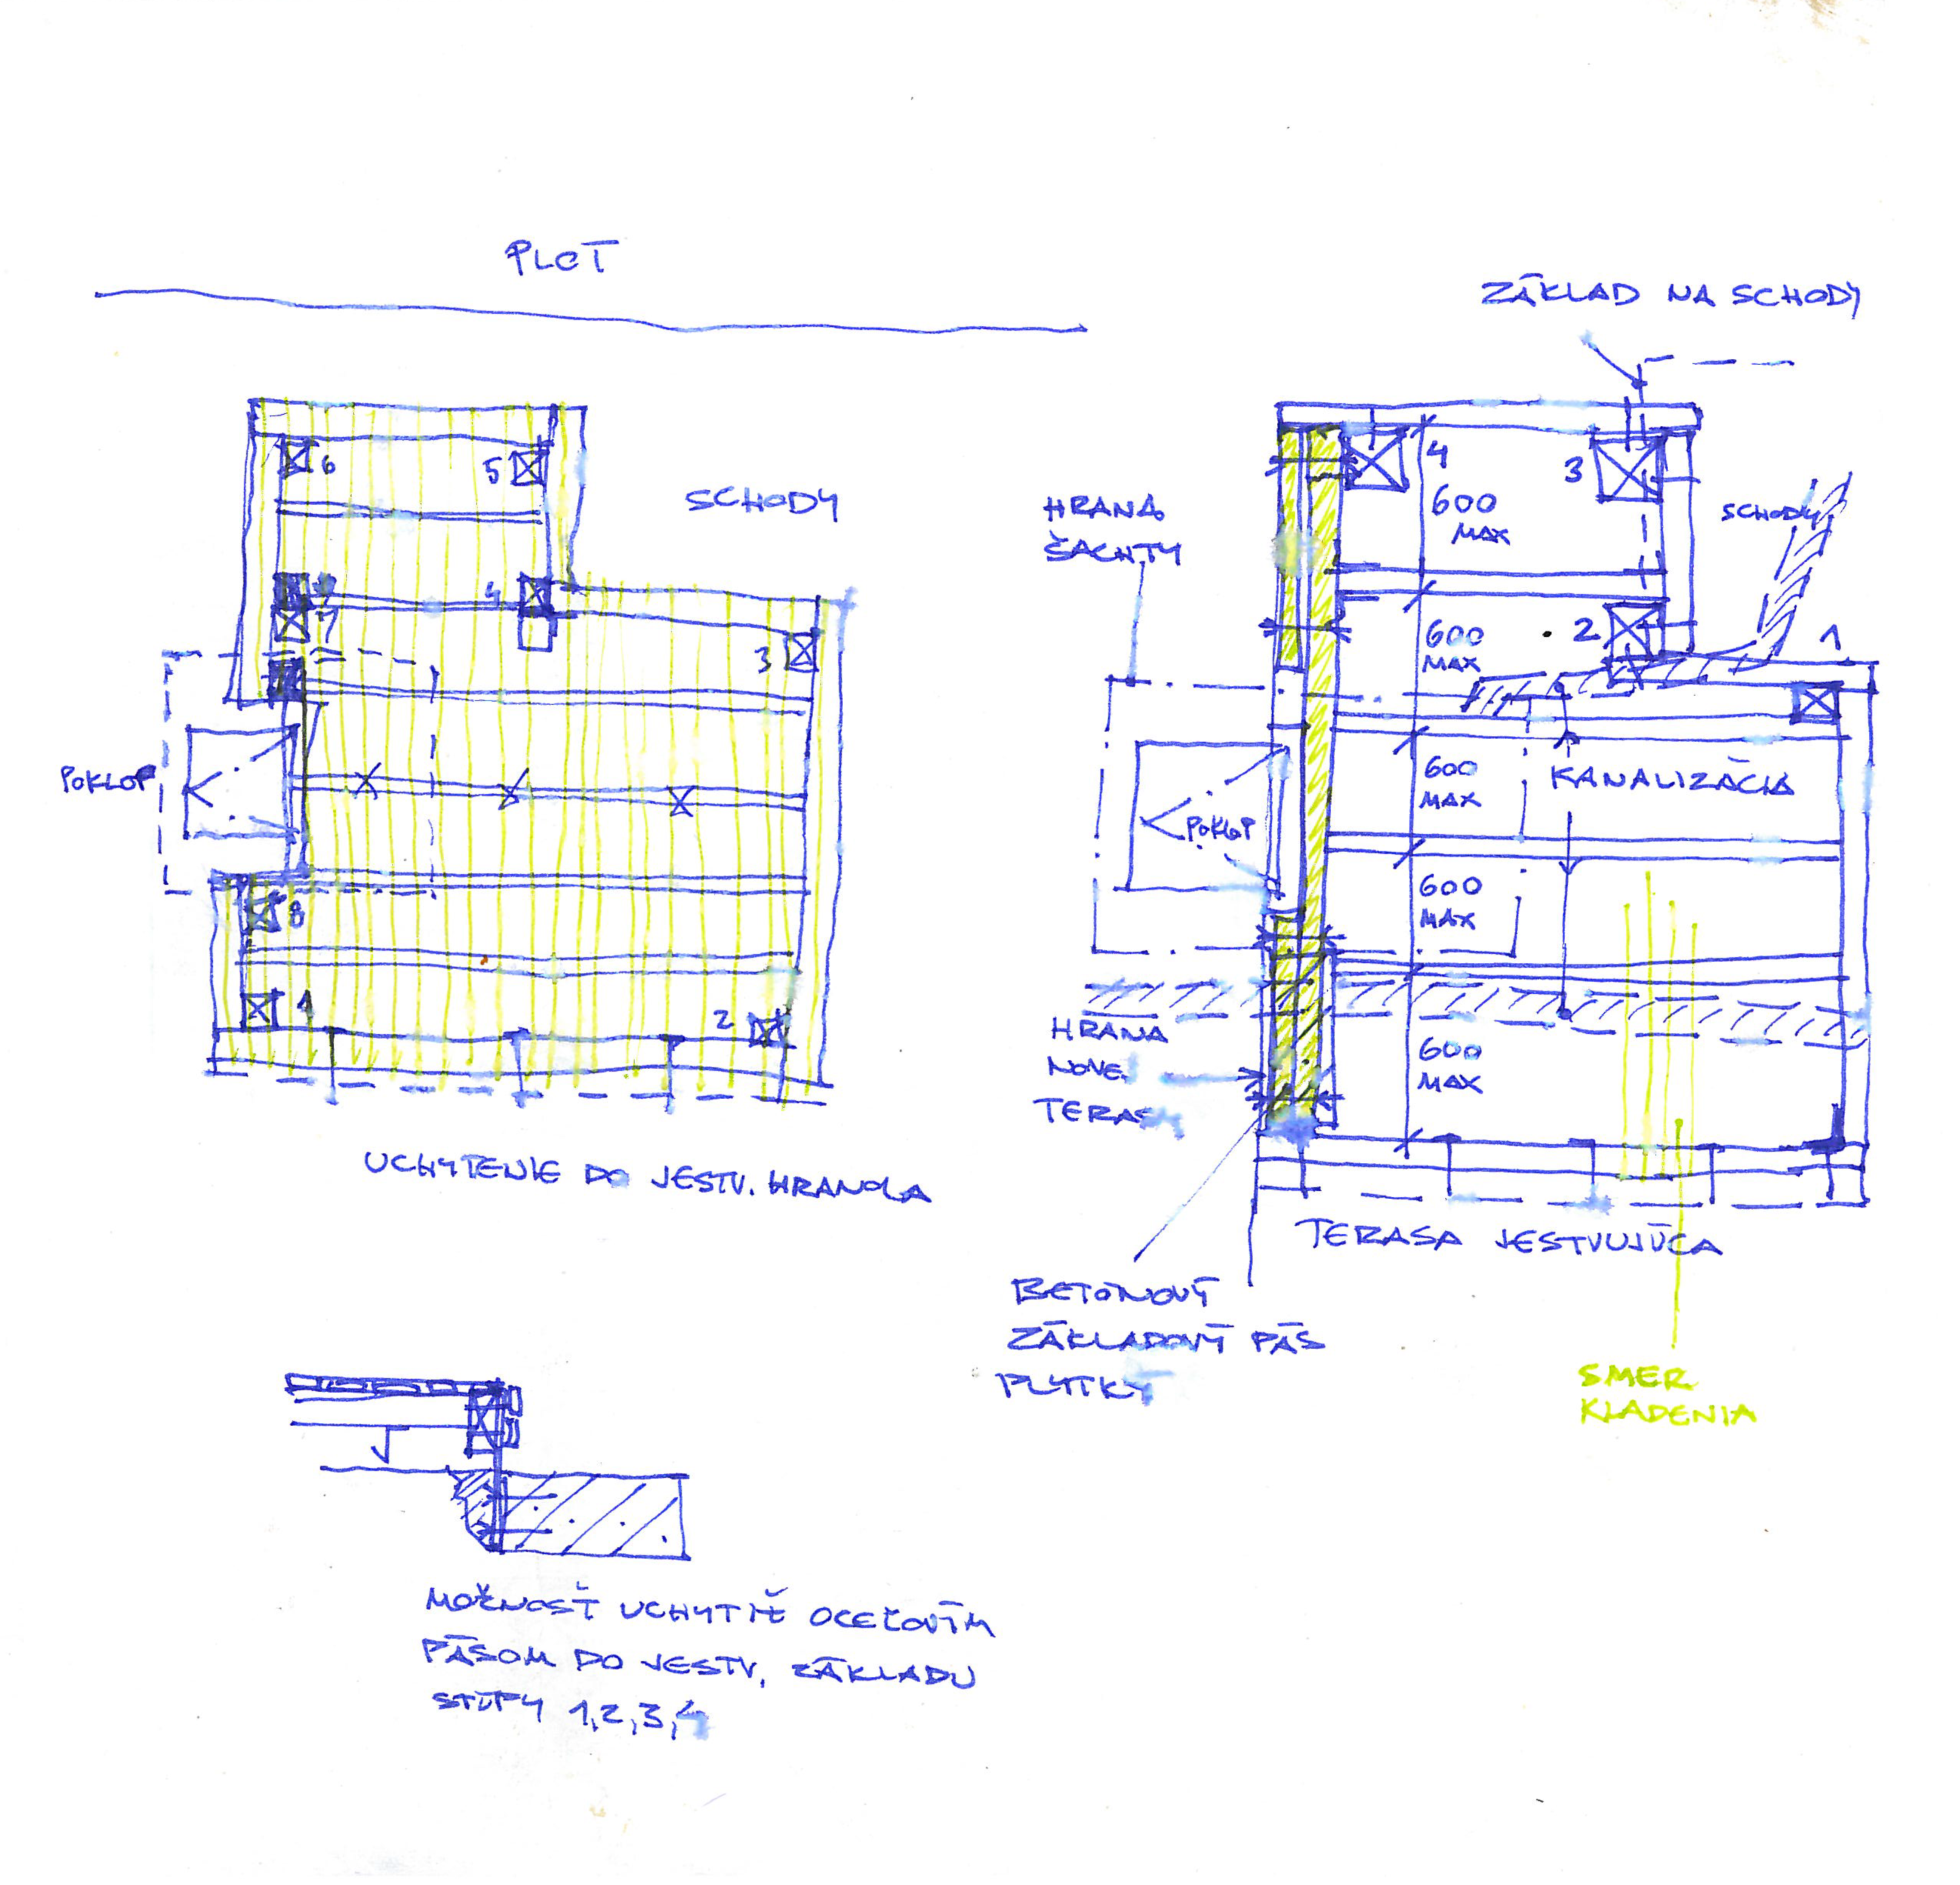 PLOT
6
5
SCHODY
7
4
3
POKLOP
8
1
2
UCHYTENIE DO JESTV. HRANOLA
MOŽNOSŤ UCHYTIŤ OCEĽOVÝM
PÁSOM DO JESTV. ZÁKLADU
STĹPY 1,2,3,4
ZÁKLAD NA SCHODY
4
3
600
MAX
HRANA
ŠACHTY
SCHODY
600
MAX
2
1
600
MAX
KANALIZÁCIA
POKLOP
600
MAX
HRANA
NOVEJ
TERASY
600
MAX
TERASA JESTVUJÚCA
BETÓNOVÝ
ZÁKLADOVÝ PÁS
PLYTKÝ
SMER
KLADENIA